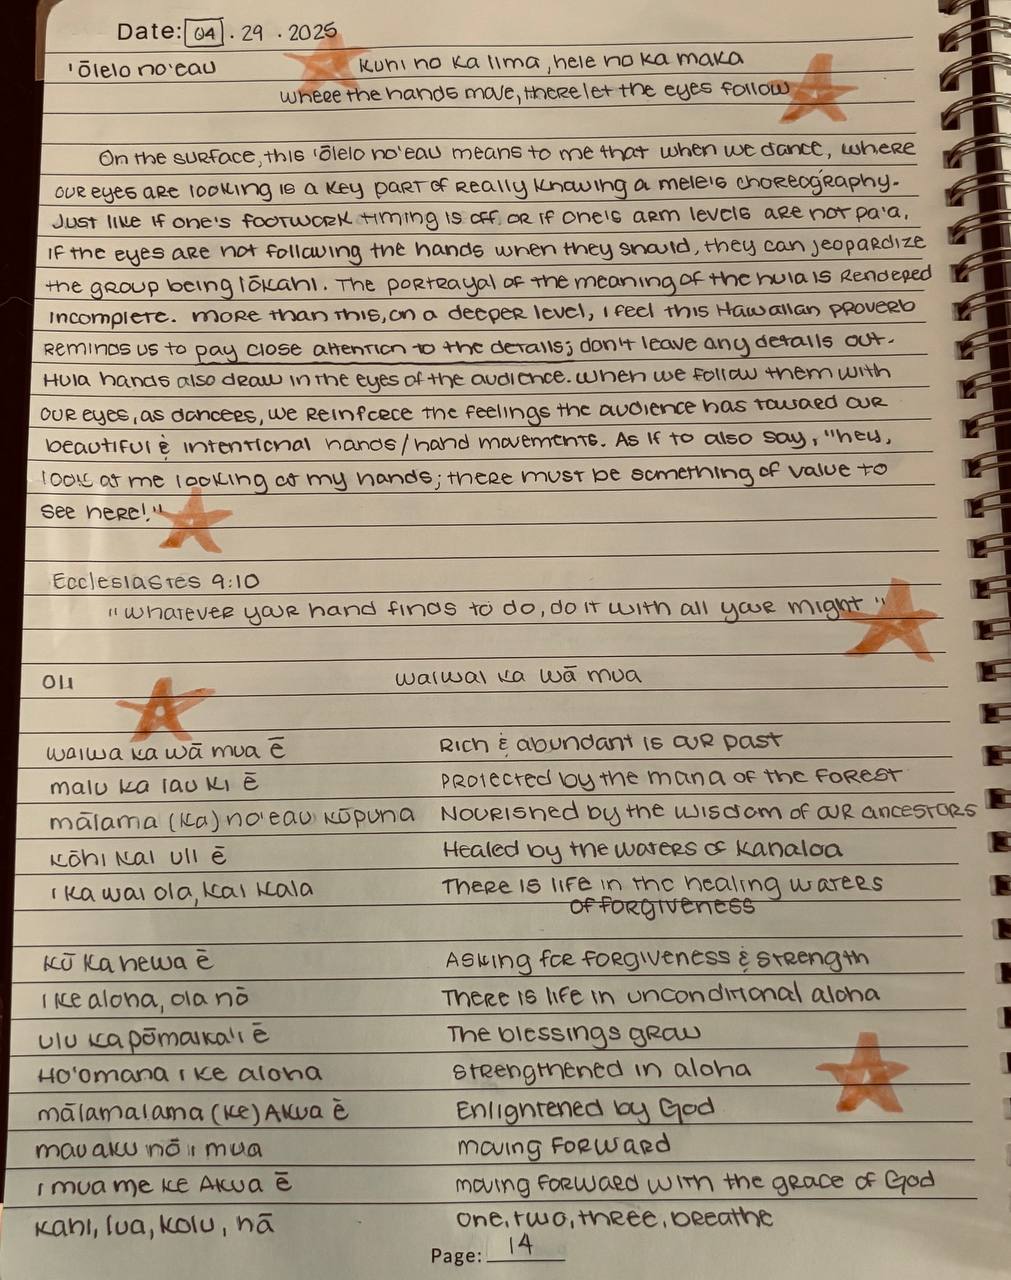 Date: 04 . 29 . 2025
'ōlelo no'eau
Kuhi no ka lima, hele no ka maka
where the hands move, there let the eyes follow
On the surface, this 'ōlelo no'eau means to me that when we dance, where
our eyes are looking is a key part of really knowing a mele's choreography.
Just like if one's footwork timing is off or if one's arm levels are not pa'a,
if the eyes are not following the hands when they should, they can jeopardize
the group being lōkahi. The portrayal of the meaning of the hula is rendered
incomplete. More than this, on a deeper level, I feel this Hawaiian proverb
reminds us to pay close attention to the details; don't leave any details out.
Hula hands also draw in the eyes of the audience. When we follow them with
our eyes, as dancers, we reinforce the feelings the audience has toward our
beautiful & intentional hands/hand movements. As if to also say, "hey,
look at me looking at my hands; there must be something of value to
see here!"
Ecclesiastes 9:10
"Whatever your hand finds to do, do it with all your might"
Oli
Waiwai ka wā mua
waiwa ka wā mua ē
Rich & abundant is our past
malu ka lau ki ē
Protected by the mana of the forest
mālama (ka) no'eau kūpuna
Nourished by the wisdom of our ancestors
kōhi kai uli ē
Healed by the waters of Kanaloa
i ka wai ola, kai kala
There is life in the healing waters
of forgiveness
kū ka hewa ē
Asking for forgiveness & strength
i ke aloha, ola nō
There is life in unconditional aloha
ulu ka pōmaika'i ē
The blessings grow
Ho'omana i ke aloha
strengthened in aloha
mālamalama (ke) Akua ē
Enlightened by God
mau aku nō i mua
moving forward
i mua me ke Akua ē
moving forward with the grace of God
kahi, lua, kolu, hā
one, two, three, breathe
Page: 14